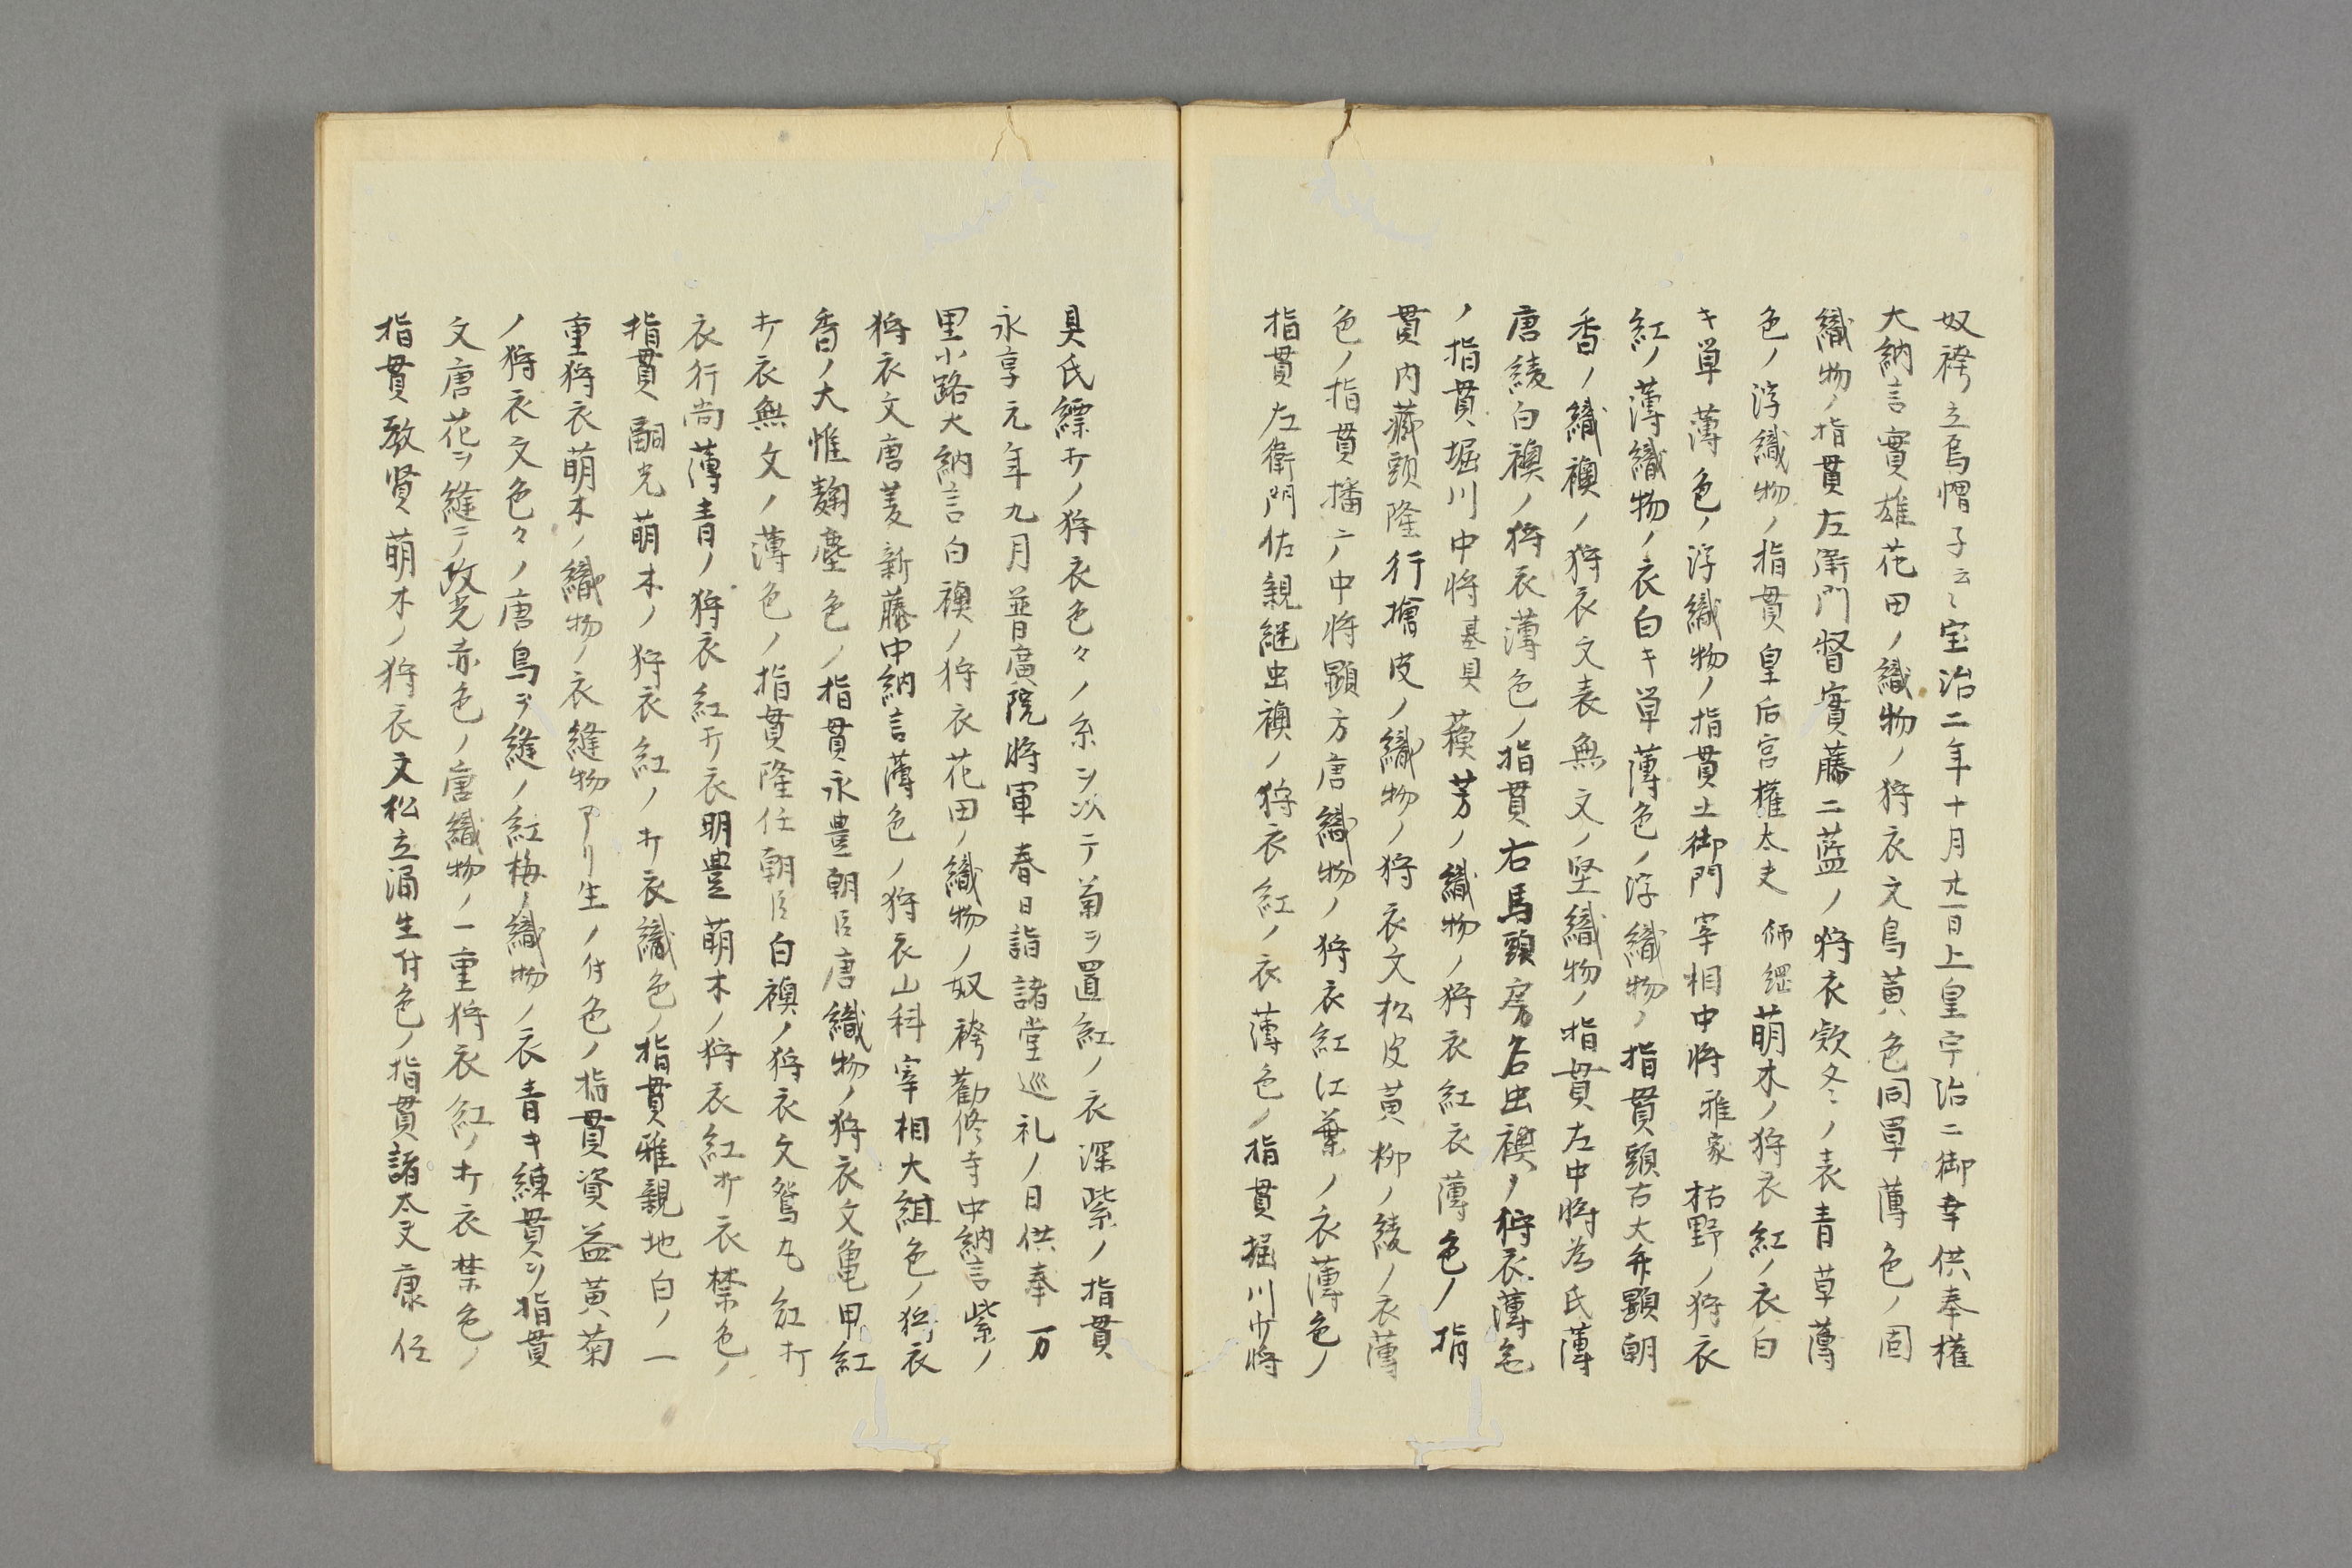 奴袴立烏帽子云々宝治二年十月廿一日上皇宇治ニ御幸供奉權
大納言實雄花田ノ織物ノ狩衣文鳥黄色同單薄色ノ固
織物ノ指貫左衛門督實藤二藍ノ狩衣欵冬ノ表青草薄
色ノ浮織物ノ指貫皇后宮權太夫師繼萌木ノ狩衣紅ノ衣白
キ単薄色ノ浮織物ノ指貫土御門宰相中将雅家枯野ノ狩衣
紅ノ薄織物ノ衣白キ単薄色ノ浮織物ノ指貫頭右大弁顕朝
香ノ織襖ノ狩衣文表無文ノ堅織物ノ指貫左中将為氏薄
唐綾白襖ノ狩衣薄色ノ指貫右馬頭房名虫襖ノ狩衣薄色
ノ指貫堀川中将基具蘓芳ノ織物ノ狩衣紅衣薄色ノ指
貫内藏頭隆行檜皮ノ織物ノ狩衣文松皮黄柳ノ綾ノ衣薄
色ノ指貫播ニノ中将顕方唐織物ノ狩衣紅江葉ノ衣薄色ノ
指貫左衛門佐親継虫襖ノ狩衣紅ノ衣薄色ノ指貫堀川少将
具氏縹オノ狩衣色々ノ糸ヲ以テ菊ヲ置紅ノ衣深紫ノ指貫
永享元年九月普廣院将軍春日詣諸堂巡礼ノ日供奉万
里小路大納言白襖ノ狩衣花田ノ織物ノ奴袴勸修寺中納言紫ノ
狩衣文唐菱新藤中納言薄色ノ狩衣山科宰相大組色ノ狩衣
香ノ大惟麹塵色ノ指貫永豊朝臣唐織物ノ狩衣文亀甲紅
オ衣無文ノ薄色ノ指貫隆任朝臣白襖ノ狩衣文鴛丸紅オ
衣行尚薄青ノ狩衣紅オ衣明豊萌木ノ狩衣紅オ衣禁色ノ
指貫嗣光萌木ノ狩衣紅ノオ衣織色ノ指貫雅親地白ノ一
重狩衣萌木ノ織物ノ衣縫物アリ生ノ付色ノ指貫資益黄菊
ノ狩衣文色々ノ唐鳥ヲ縫ノ紅梅ノ織物ノ衣青キ練貫ヲ指貫
文唐花ヲ縫ニノ政光赤色ノ唐織物ノ一重狩衣紅ノオ衣禁色ノ
指貫敎賢萌木ノ狩衣文松立涌生付色ノ指貫諸太夫康任